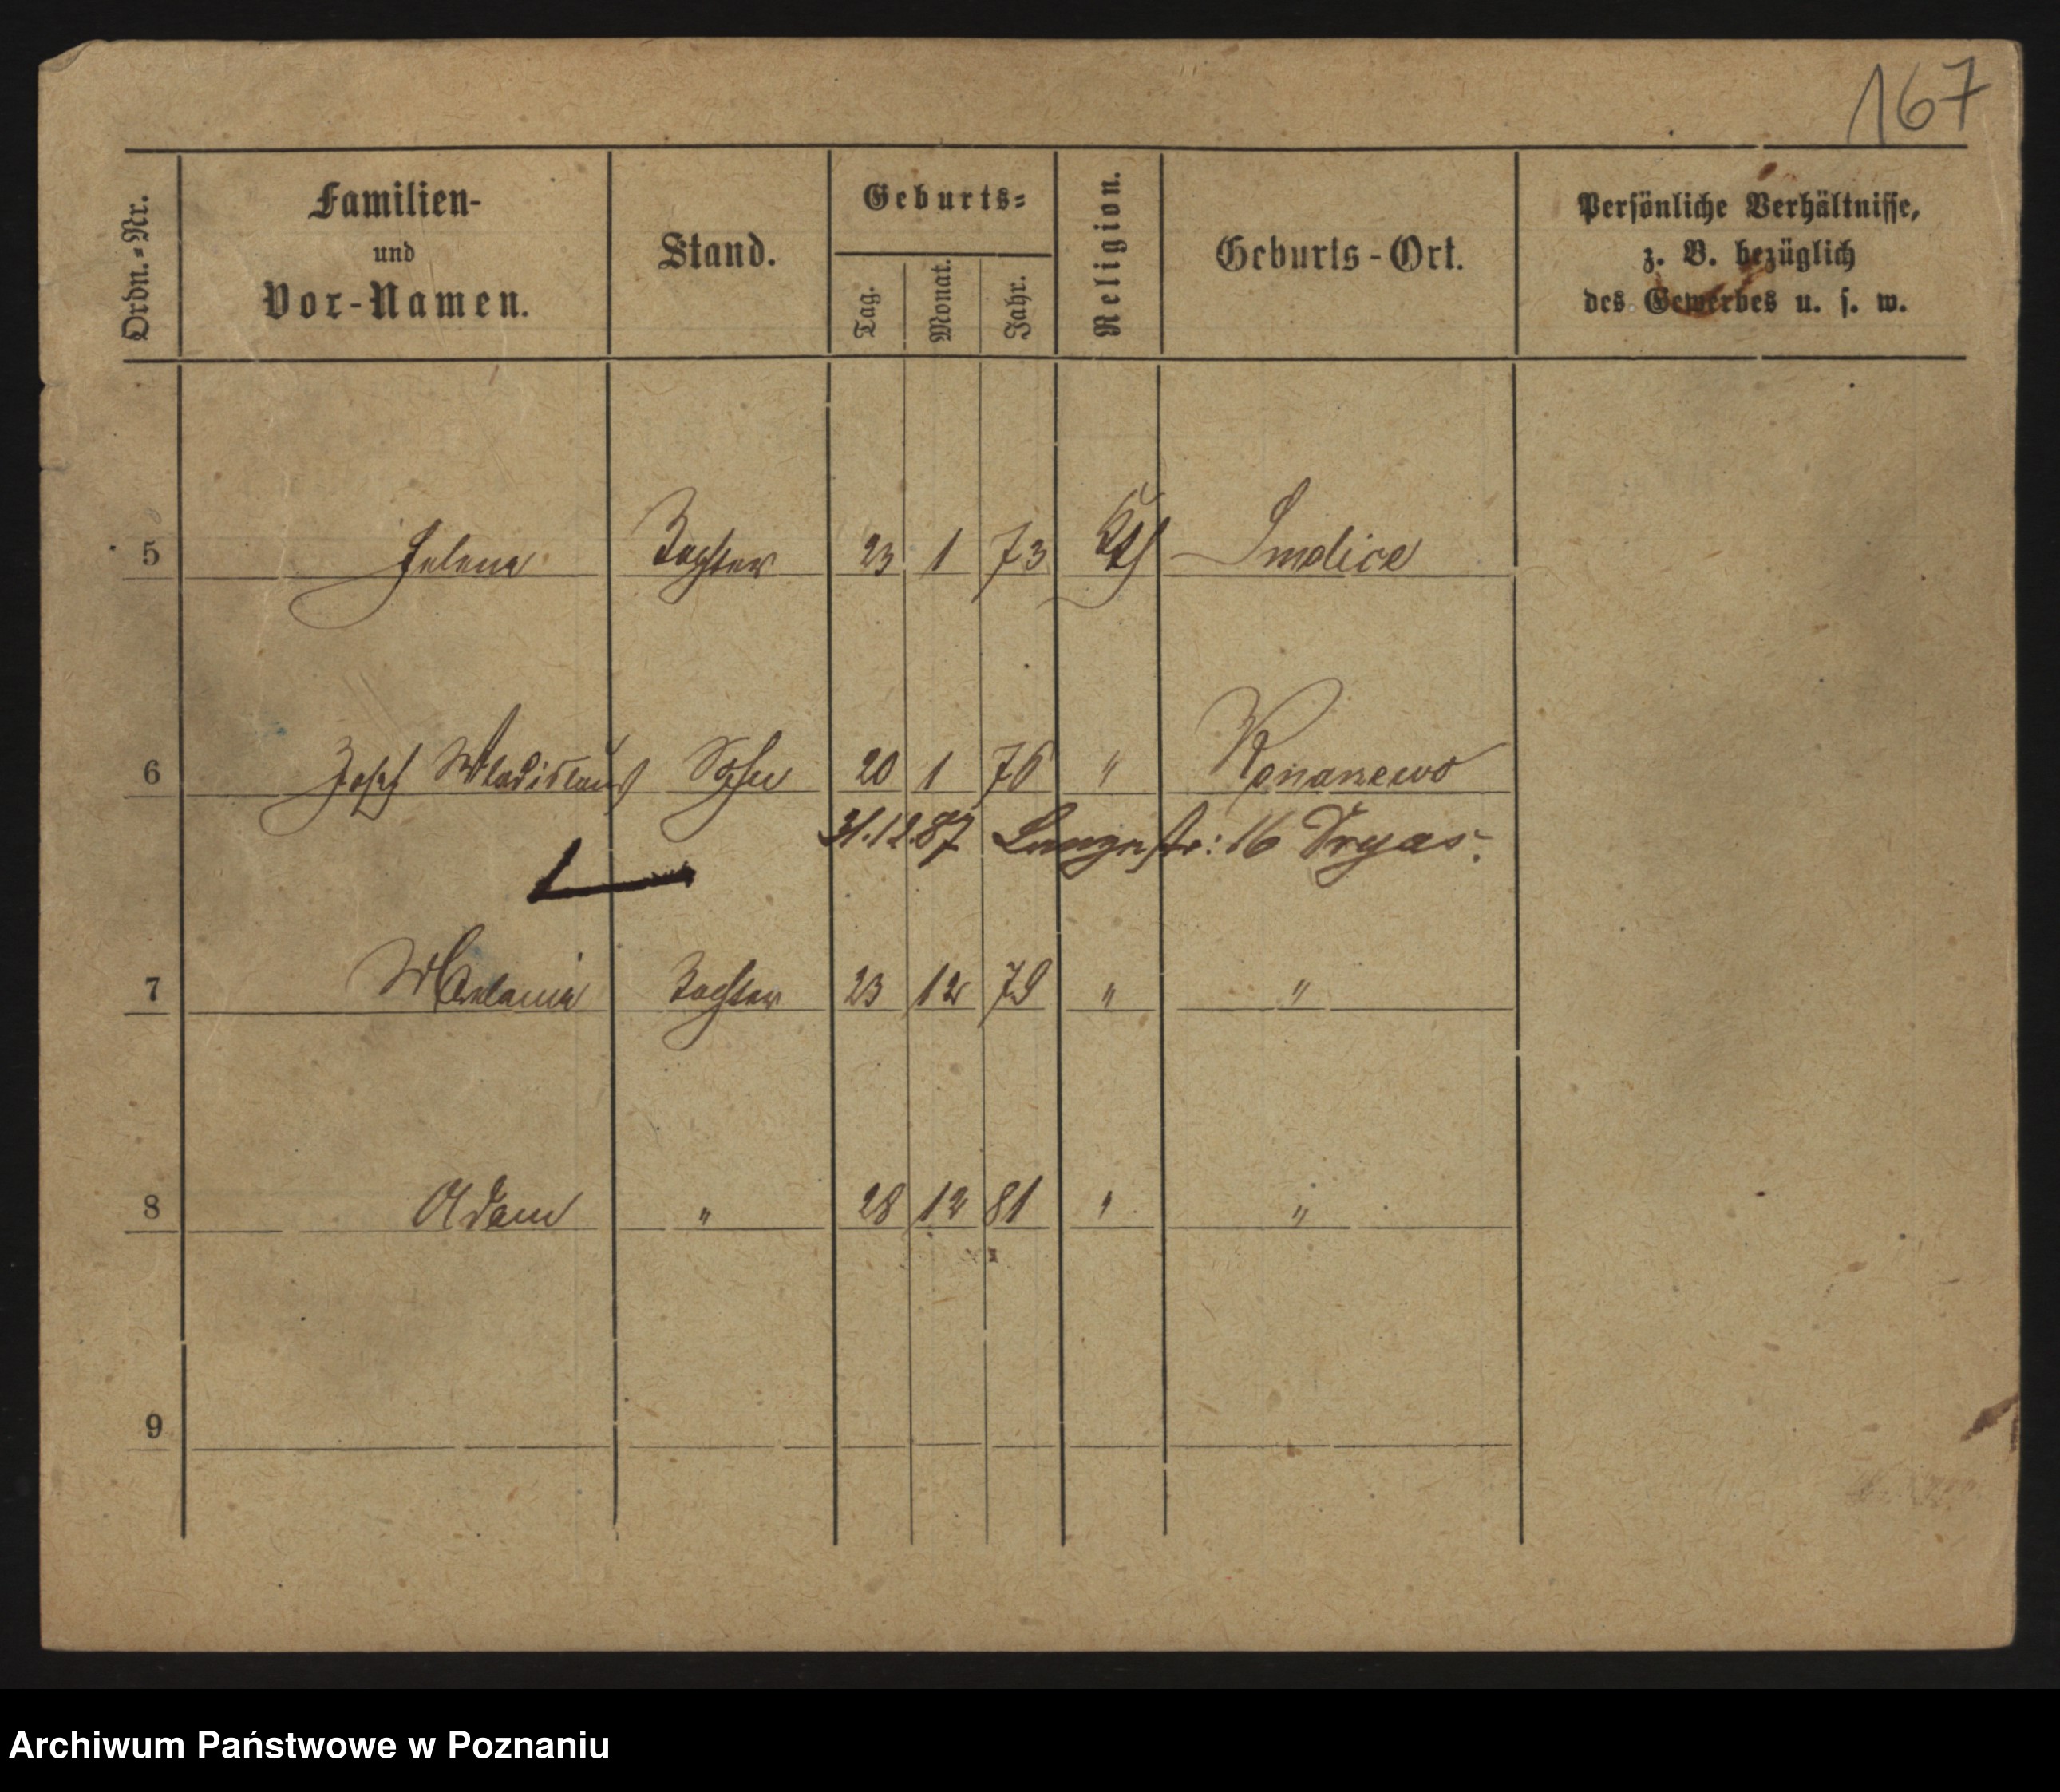 167
Ordn.-Nr.
Familien-
und
Vor-Namen.
Stand.
Geburts-
Tag.
Monat.
Jahr.
Religion.
Geburts-Ort.
Persönliche Verhältnisse,
z. B. bezüglich
des Gewerbes u. s. w.
5 Helena Tochter 23 1 73 Kth Smolice
6 Josef Wladislaus Sohn 20 1 76 " Konarzewo
31.12.87 Langestr: 16 Dryas.
7 Melania Tochter 23 12 79 " "
8 Adam " 28 12 81 " "
9
Archiwum Państwowe w Poznaniu